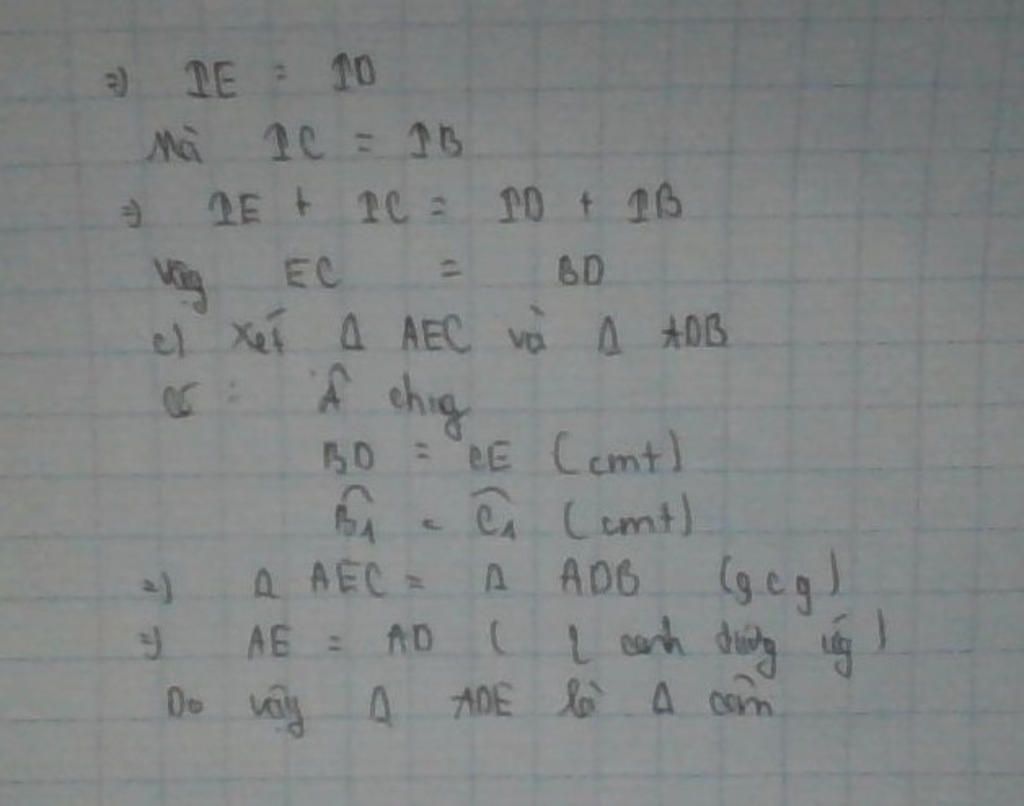 =) IE = ID
Mà IC = IB
=) IE + IC = ID + IB
Vậy EC = BD
c) Xét Δ AEC và Δ ADB
có : Â chung
BD = CE (cmt)
B̂₁ = Ĉ₁ (cmt)
=) Δ AEC = Δ ADB (g c g)
=) AE = AD ( 2 cạnh tương ứng )
Do vậy Δ ADE là Δ cân